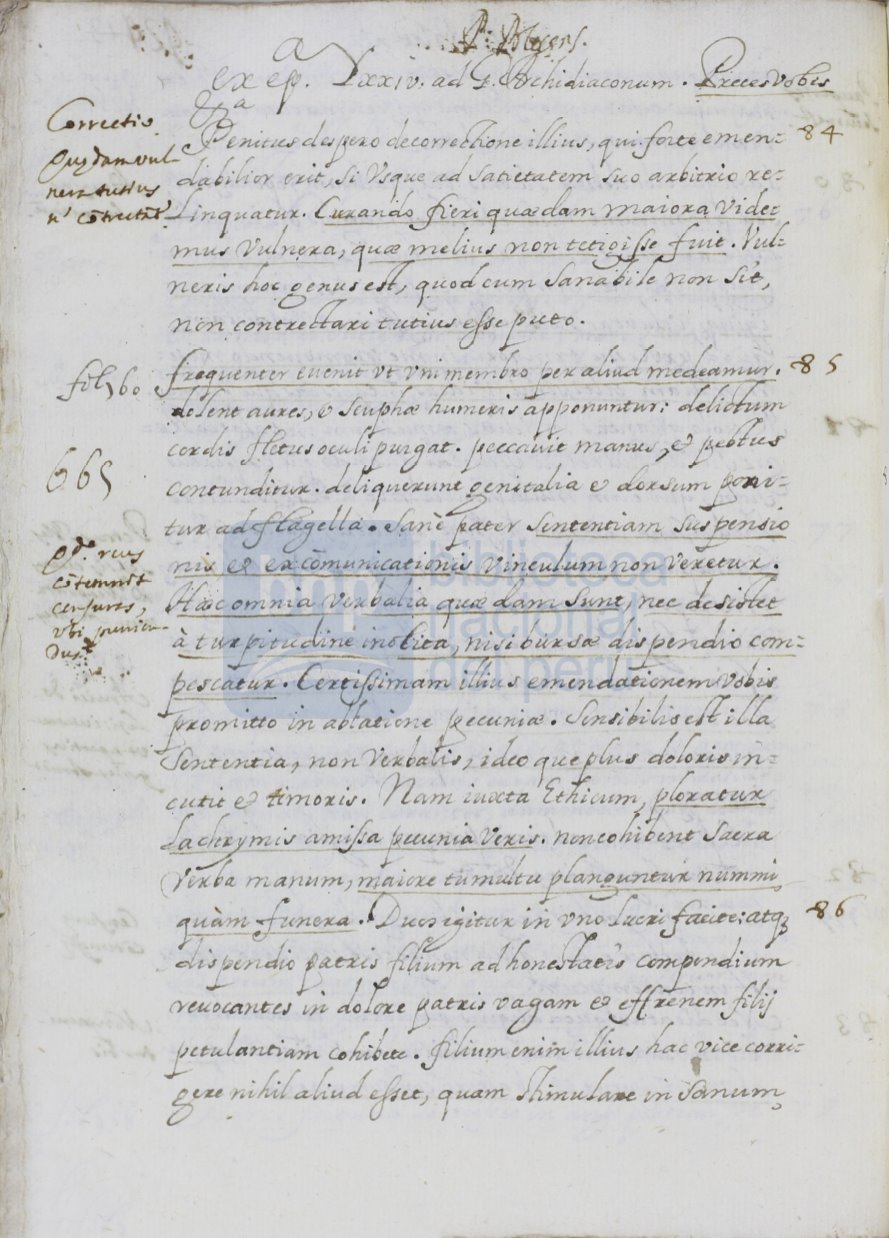 P. Blesens.
ex ep. Lxxiv. ad G. Archidiaconum. Preces vobis
&a
Penitus despero de correctione illius, qui forte emen- 84
dabilior erit, si vsque ad satietatem suo arbitrio re-
linquatur. Curando fieri quædam maiora vide-
mus vulnera, quæ melius non tetigisse fuit. Vul-
neris hoc genus est, quod cum sanabile non sit,
non contrectari tutius esse puto.
Correctio
Quædam vul-
nera tutius
n' cōtrectāt'
frequenter euenit vt vni membro per aliud medeamur. 85
dolent aures, & scuphæ humeris apponuntur: delictum
cordis fletus oculi purgat. peccauit manus, et pectus
contunditur. deliquerunt genitalia & dorsum poni-
tur ad flagella. Sanè pater sententiam suspensio
nis, et excōmunicationis vinculum non veretur.
Hæc omnia verbalia quædam sunt, nec desistet
à turpitudine inolita, nisi bursæ dispendio com-
pescatur. Certissimam illius emendationem vobis
promitto in ablatione pecuniæ. Sensibilis est illa
sententia, non verbalis, ideoque plus doloris in-
cutit & timoris. Nam iuxta Ethicum, ploratur
Lachrymis amissa pecunia veris. non cohibent sacra
verba manum, maiore tumultu planguntur nummi,
quàm funera. Duos igitur in vno lucri facite: atq; 86
dispendio patris filium ad honestatis compendium
reuocantes in dolore patris vagam & effrenem filij
petulantiam cohibete. filium enim illius hac vice corri-
gere nihil aliud esset, quam stimulare in sanum,
fol, 60
665
Qdo reus
cōtemnit
censuras,
vbi punien
dus
biblioteca
nacional
del perú